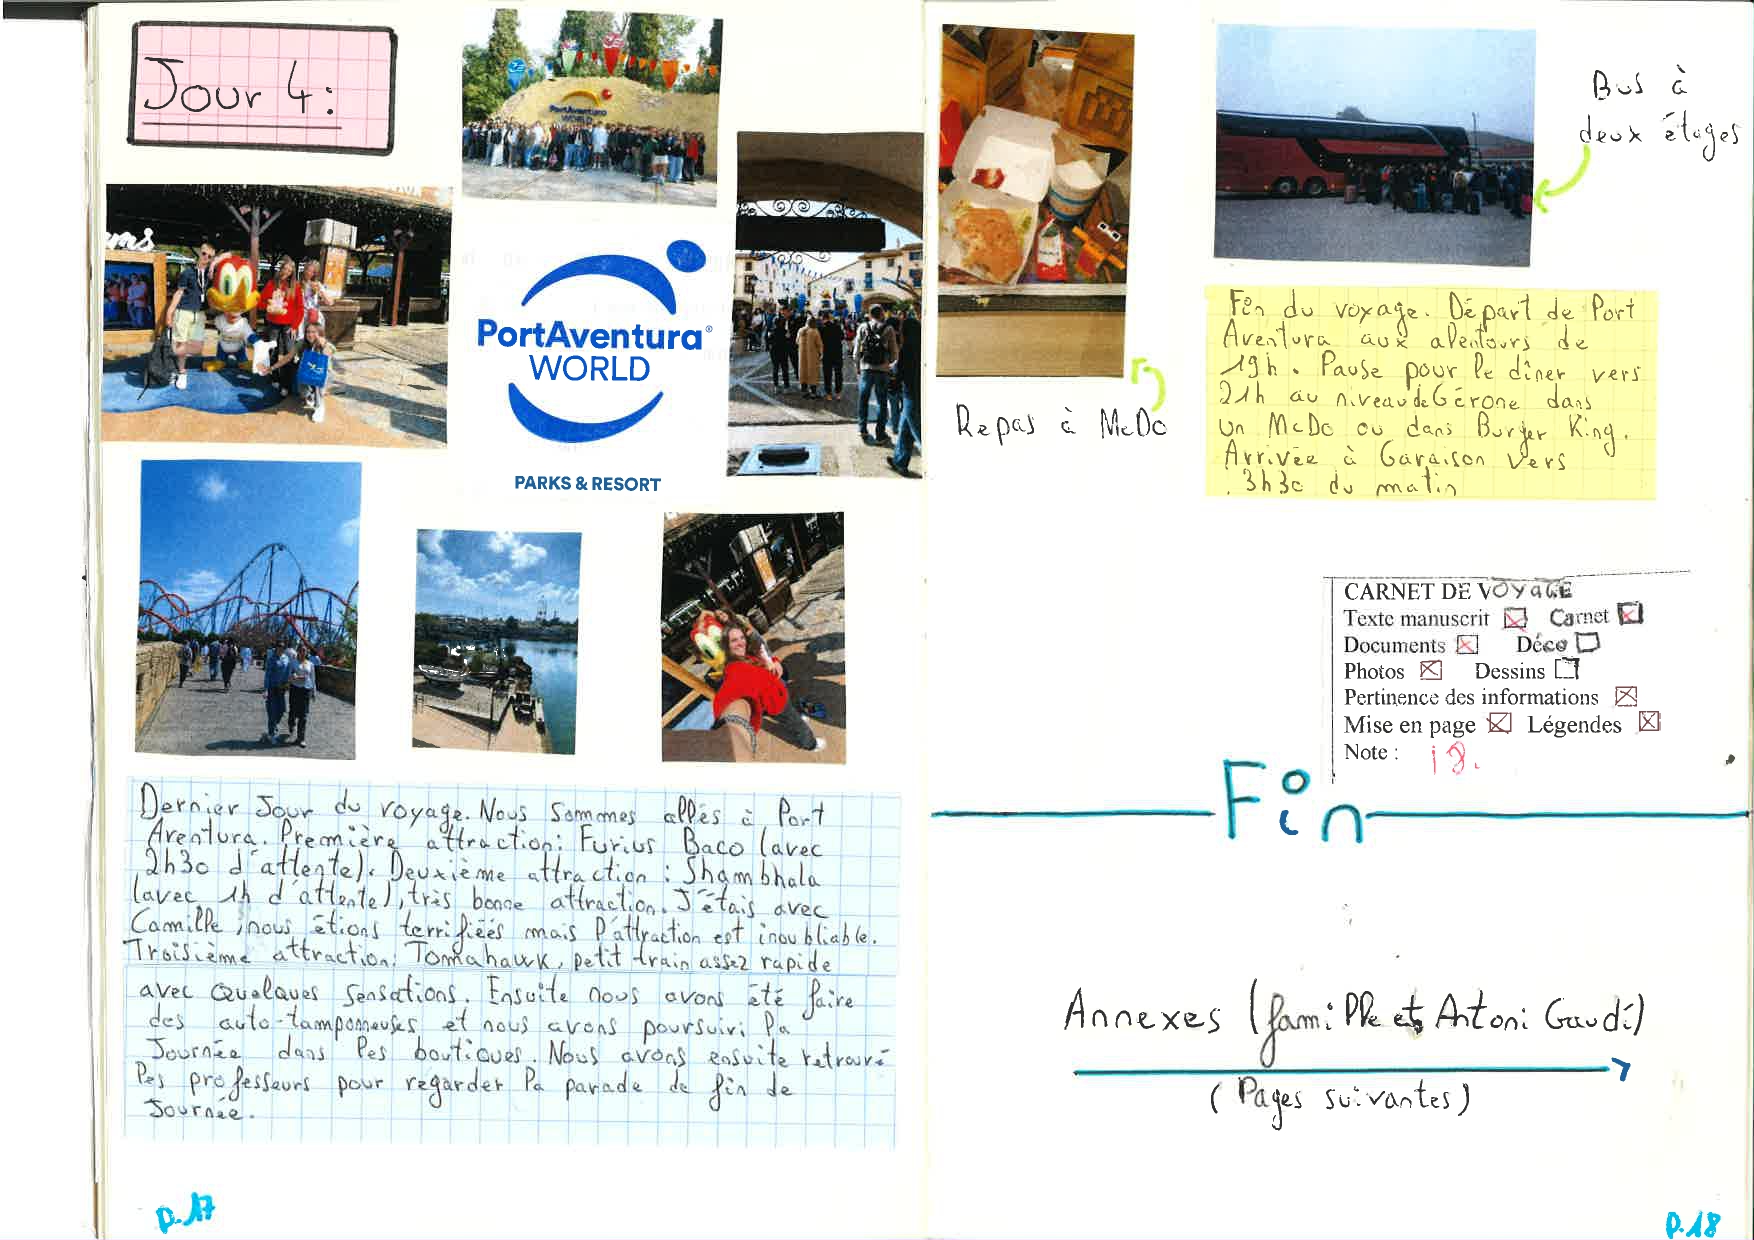 Jour 4:
PortAventura
WORLD
PortAventura®
WORLD
PARKS & RESORT
Dernier Jour du voyage. Nous sommes allés à Port
Aventura. Première attraction: Furius Baco (avec
2h30 d'attente). Deuxième attraction : Shambhala
(avec 1h d'attente), très bonne attraction. J'étais avec
Camille, nous étions terrifiées mais l'attraction est inoubliable.
Troisième attraction: Tomahawk, petit train assez rapide
avec quelques sensations. Ensuite nous avons été faire
des auto-tamponneuses et nous avons poursuivi la
Journée dans les boutiques. Nous avons ensuite retrouvé
les professeurs pour regarder la parade de fin de
Journée.
p.17
Repas à McDo
Bus à
deux étages
Fin du voyage. Départ de Port
Aventura aux alentours de
19h. Pause pour le dîner vers
21h au niveau de Gérone dans
un McDo ou dans Burger King.
Arrivée à Garaison vers
3h30 du matin
CARNET DE VOYAGE
Texte manuscrit Carnet
Documents Déco
Photos Dessins
Pertinence des informations
Mise en page Légendes
Note :
Fin
Annexes (famille et Antoni Gaudí)
(Pages suivantes)
p.18